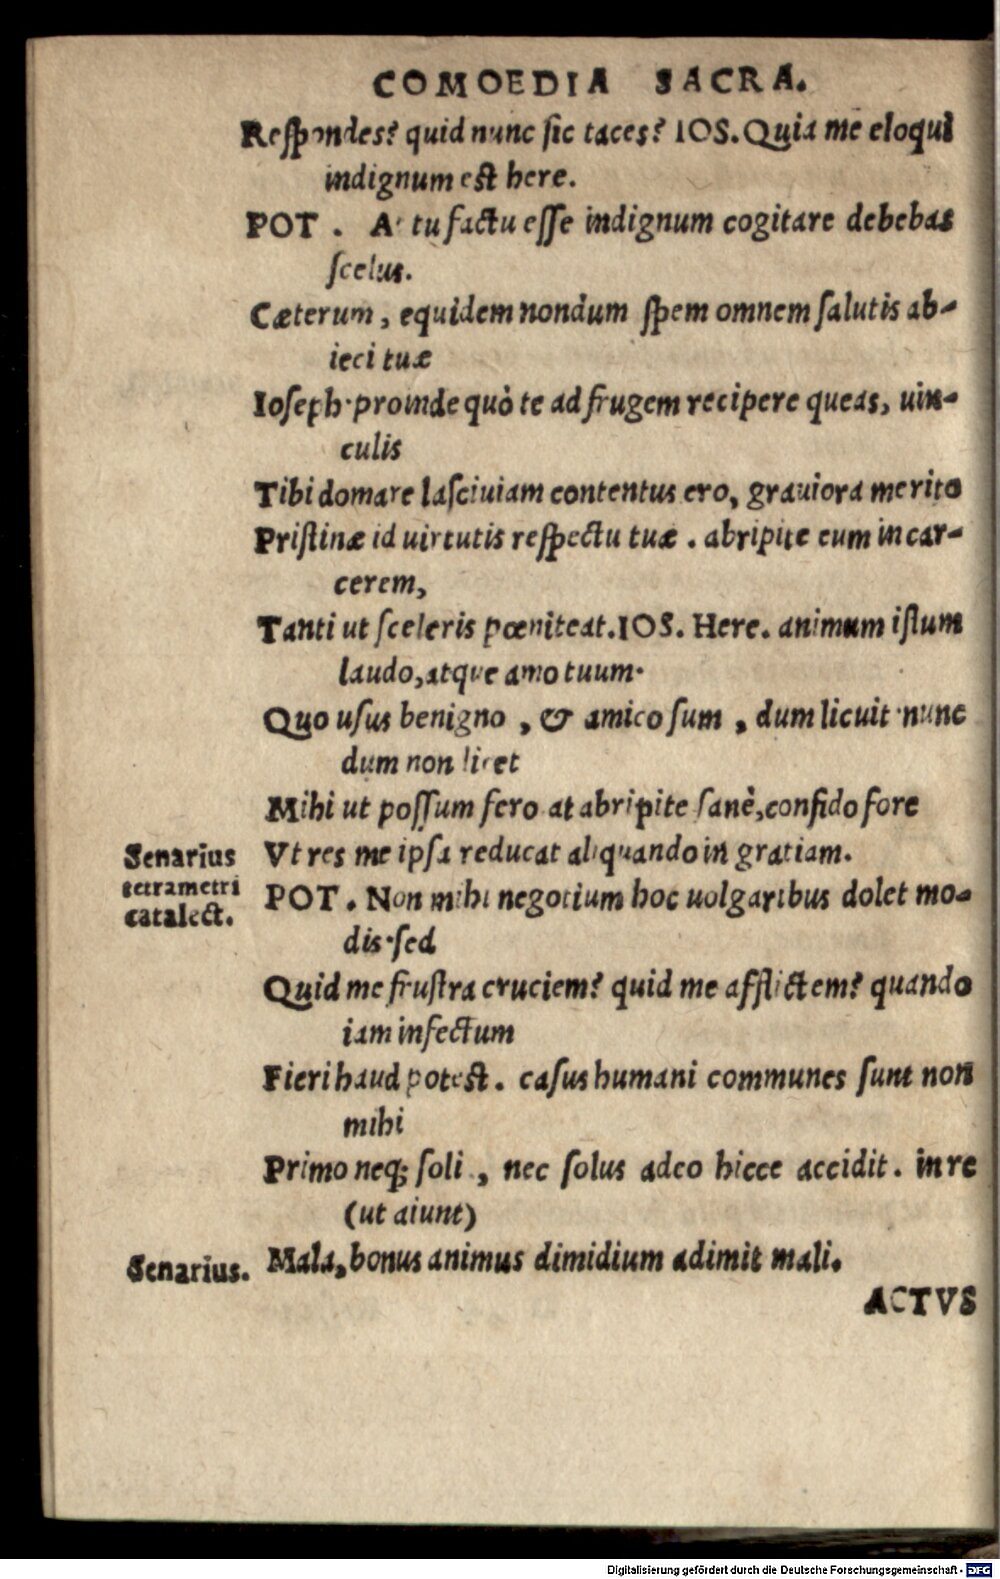 COMOEDIA SACRA.
Respondes? quid nunc sic taces? IOS. Quia me eloqui
indignum est here.
POT. At tu factu esse indignum cogitare debebas
scelus.
Cæterum, equidem nondum spem omnem salutis ab-
ieci tuæ
Ioseph. proinde quò te ad frugem recipere queas, uin-
culis
Tibi domare lasciuiam contentus ero, grauiora merito
Pristinæ id uirtutis respectu tuæ. abripite eum in car-
cerem,
Tanti ut sceleris pœniteat. IOS. Here. animum istum
laudo, atque amo tuum.
Quo usus benigno, & amico sum, dum licuit. nunc
dum non licet
Mihi ut possum fero. at abripite sanè, confido fore
Senarius Vt res me ipsa reducat aliquando in gratiam.
tetrametri
catalect.
POT. Non mihi negotium hoc uolgaribus dolet mo-
dis. sed
Quid me frustra cruciem? quid me afflictem? quando
iam infectum
Fieri haud potest. casus humani communes sunt non
mihi
Primo neq; soli, nec solus adeo hicce accidit. in re
(ut aiunt)
Senarius. Mala, bonus animus dimidium adimit mali.
ACTVS
Digitalisierung gefördert durch die Deutsche Forschungsgemeinschaft - DFG